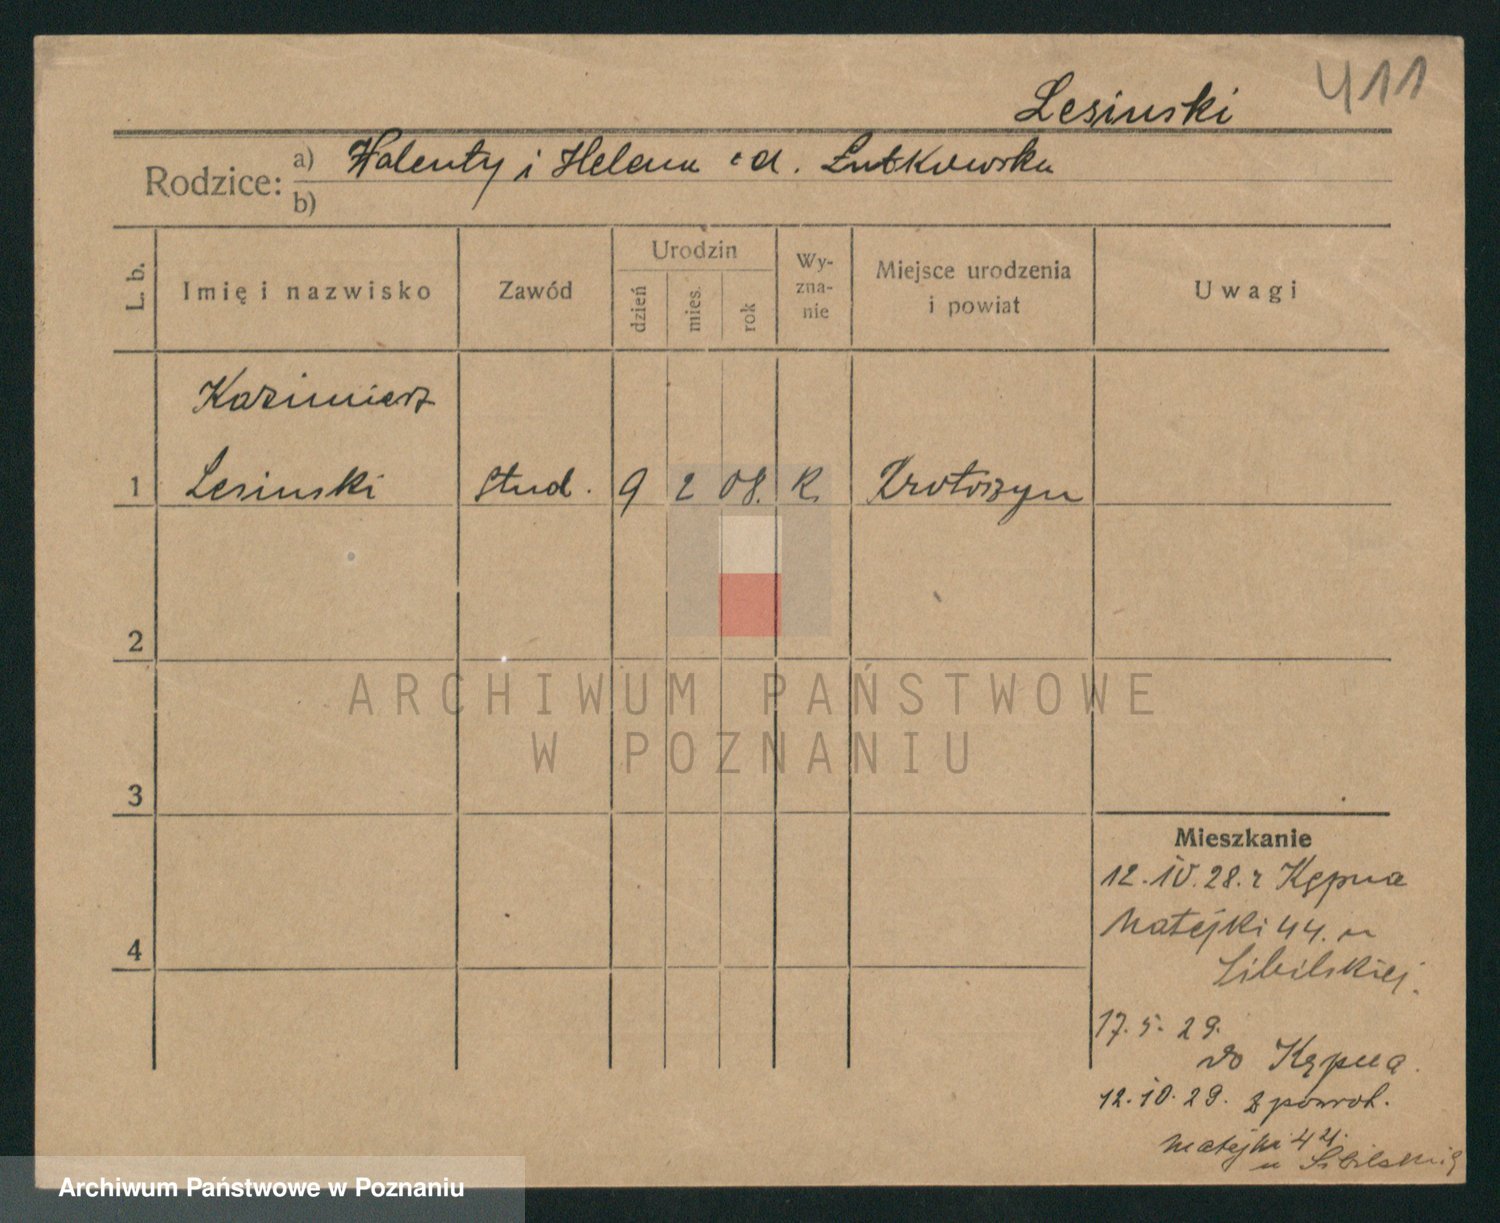 411
Lesinski
Rodzice:
a) Walenty i Helena z d. Lutkowska
b)
L. b.
Imię i nazwisko
Zawód
Urodzin
dzień
mies.
rok
Wy-
zna-
nie
Miejsce urodzenia
i powiat
Uwagi
Kazimierz
1 Lesinski stud. 9 2 08. R. Krotoszyn
2
3
4
ARCHIWUM PAŃSTWOWE
W POZNANIU
Mieszkanie
12.IV.28. z Kępna
Matejki 44. u
Sibilskiej.
17.5.29.
do Kępna.
12.10.29. z powrot.
Matejki 44.
u Sibilskiej
Archiwum Państwowe w Poznaniu